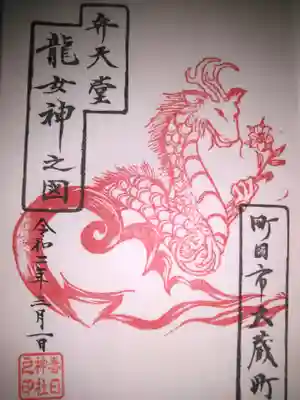 弁天堂
龍女神之図
令和二年二月一日
町田市大蔵町
春日
神社
之印